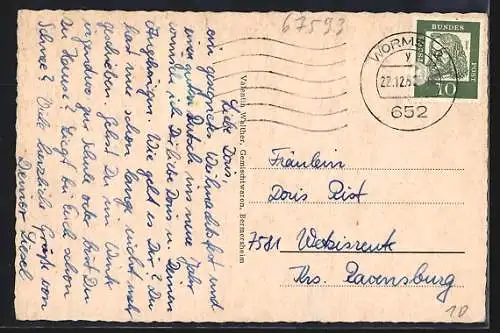 67593
Liebe Doris,
ein gesegnetes Weihnachtsfest und
einen guten Rutsch ins neue Jahr
wünsche ich Dir liebe Doris u. Deinen
Angehörigen. Wie geht es Dir? Du
hast mir schon lange nicht mehr
geschrieben. Gehst Du im Winter
irgendwo zur Schule oder bist Du
zu Hause? Liegt bei Euch schon
Schnee? Viele herzliche Grüße von
Deiner Liesel
Valentin Walther, Gemischtwaren, Bermersheim
WORMS
22.12.6
652
DEUTSCHE BUNDESPOST
10
Fräulein
Doris
7981
Krs. Ravensburg
1D